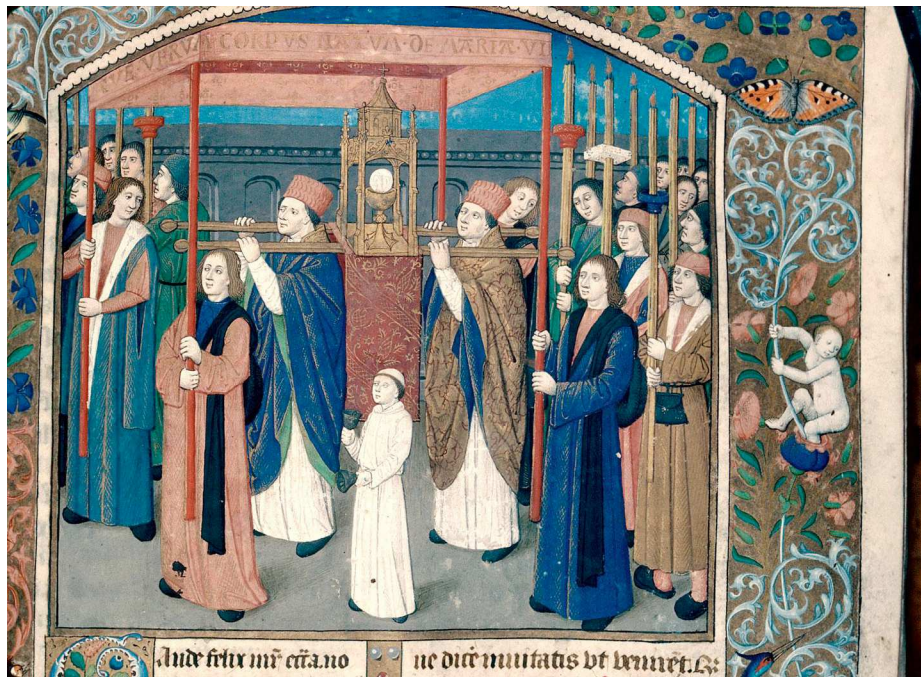 AVE VERVM CORPVS NATVM DE MARIA VI
Gaude felix mr̄ ecc̄a. no
ne dicē inuitatis vt venirēt. R